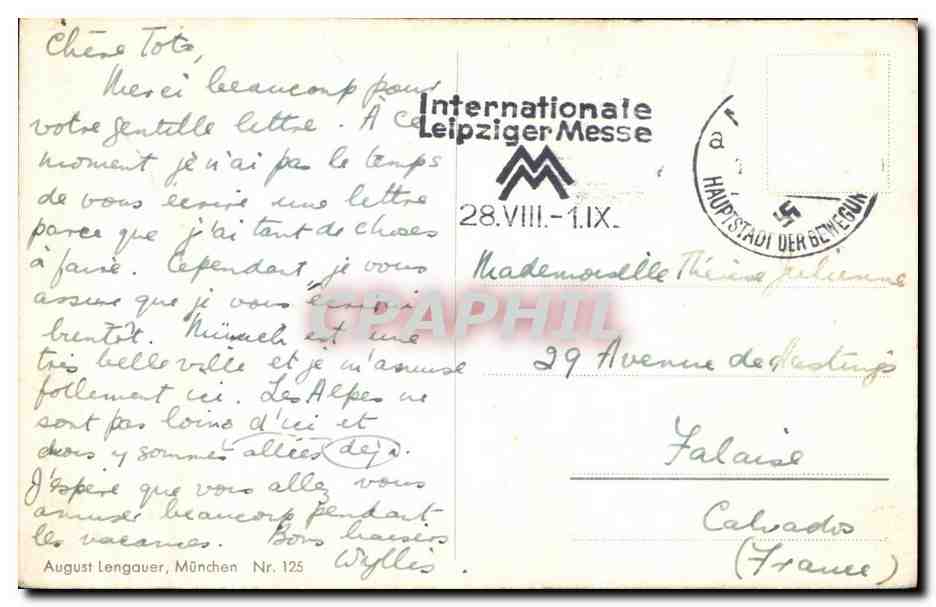 Chère Tota,
Merci beaucoup pour
votre gentille lettre. À ce
moment je n'ai pas le temps
de vous écrire une lettre
parce que j'ai tant de choses
à faire. Cependant, je vous
assure que je vous écrirai
bientôt. Münich est une
très belle ville et je m'amuse
follement ici. Les Alpes ne
sont pas loins d'ici et
nous y sommes allées déjà.
J'espère que vous allez vous
amuser beaucoup pendant
les vacances. Bons baisers
Wyllis.
August Lengauer, München Nr. 125
Internationale
Leipziger Messe
MM
28.VIII.-1.IX.
a
HAUPTSTADT DER BEWEGUN
Mademoiselle Thérèse Julienne
29 Avenue de Hastings
Falaise
Calvados
(France)
CPAPHIL